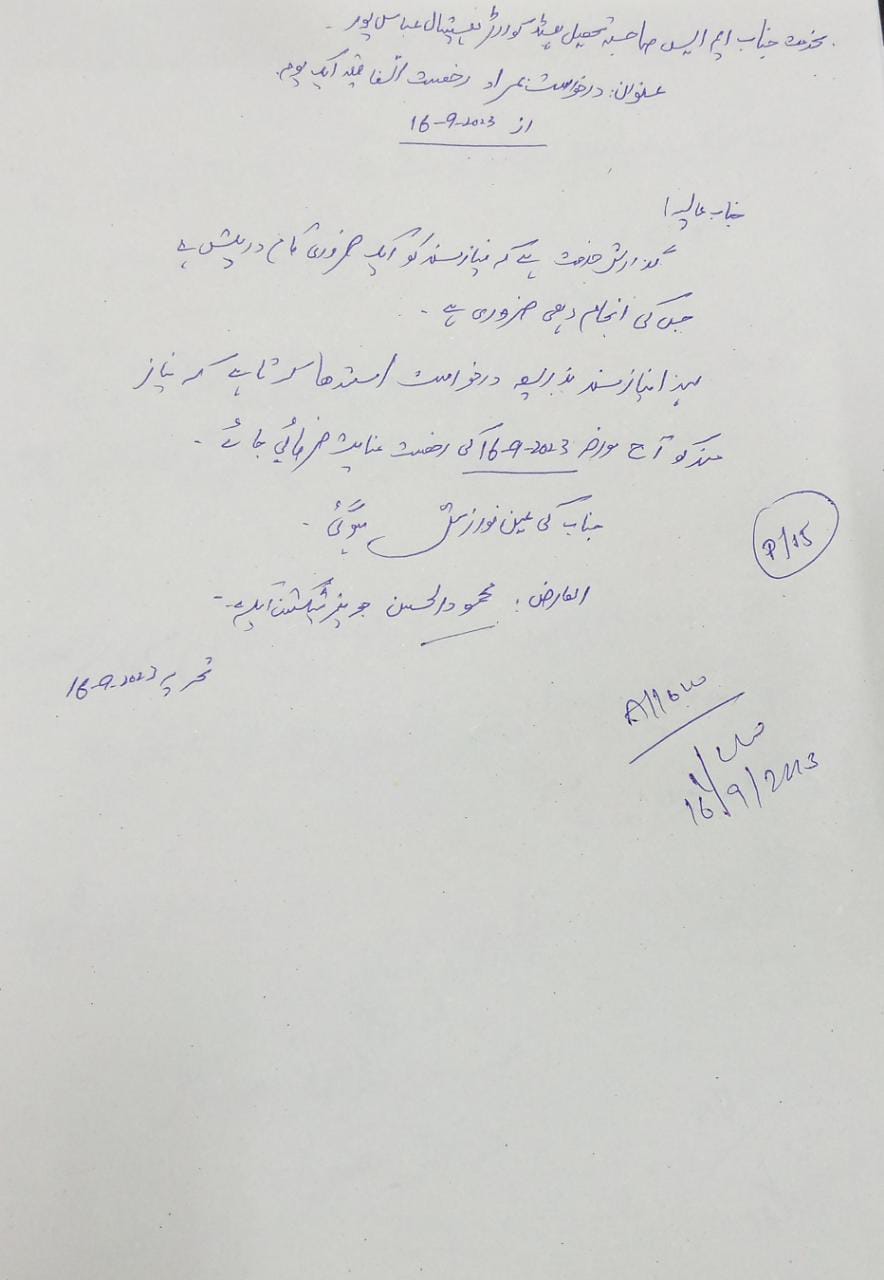 بخدمت جناب ایم ایس صاحب تحصیل ہیڈ کوارٹر ہسپتال عباس پور۔
عنوان: درخواست بمراد رخصت اتفاقیہ ایک یوم۔
از 16-9-2023
جناب عالیہ!
گذارش خدمت ہے کہ نیازمند کو ایک ضروری کام درپیش ہے
جس کی انجام دہی ضروری ہے۔
لہذا نیازمند بذریعہ درخواست استدعا کرتا ہے کہ نیاز
مند کو آج مورخہ 16-9-2023 کی رخصت عنایت فرمائی جائے۔
جناب کی عین نوازش ہوگی۔
P/15
العارض: محمود الحسن جونیئر ٹیکنیشن
تحریر 16-9-2023
Allow
16/9/2023